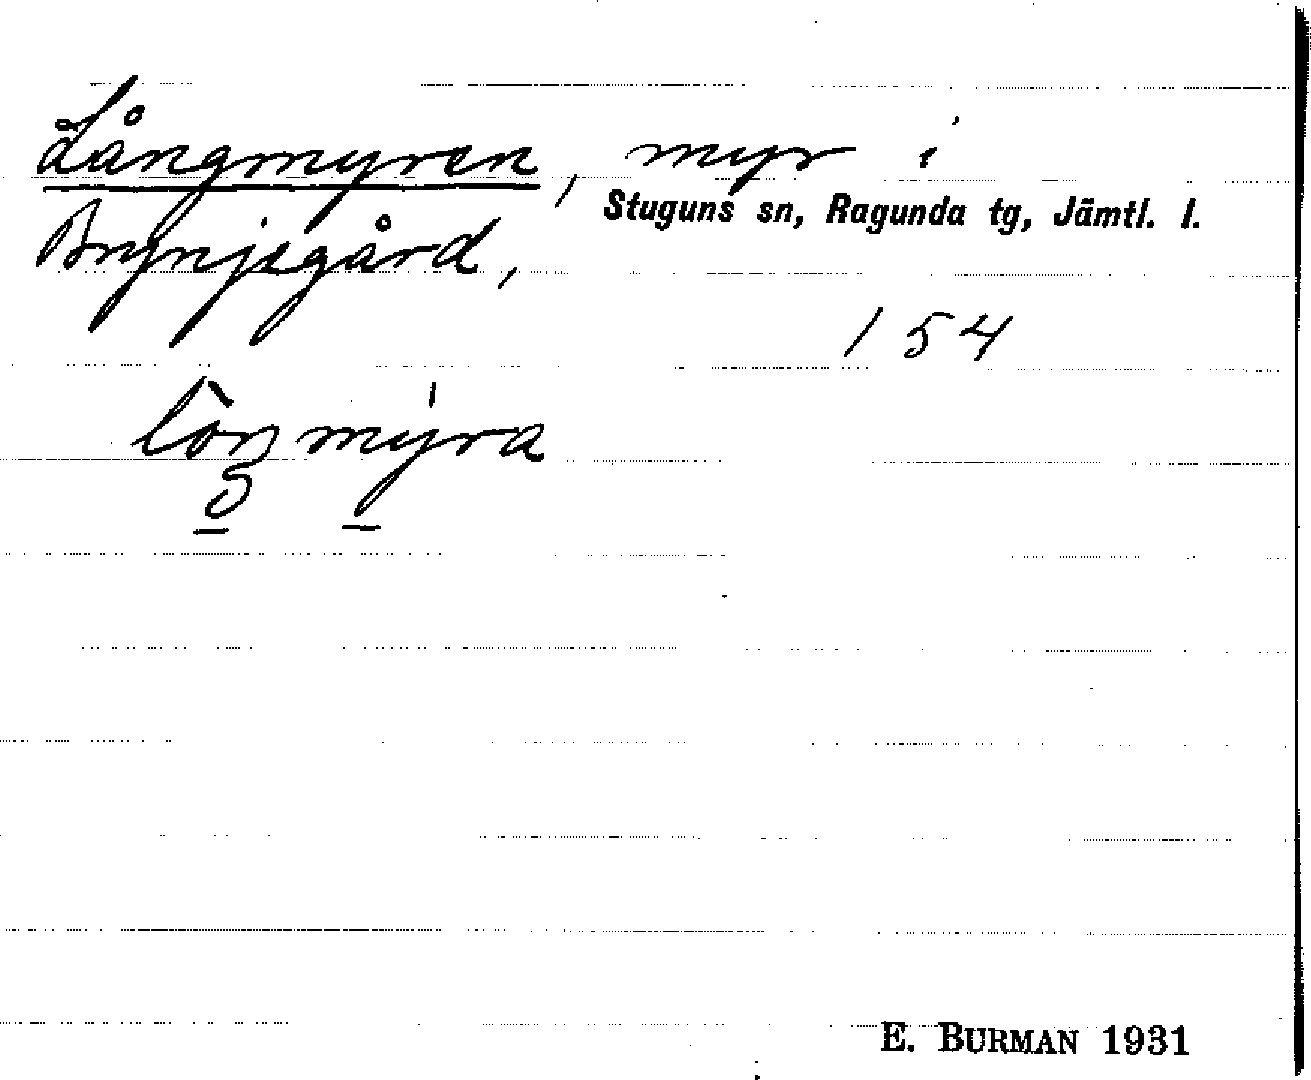 Långmyren, myr i
Stuguns sn, Ragunda tg, Jämtl. l.
Brynjegård,
154
E. BURMAN 1931